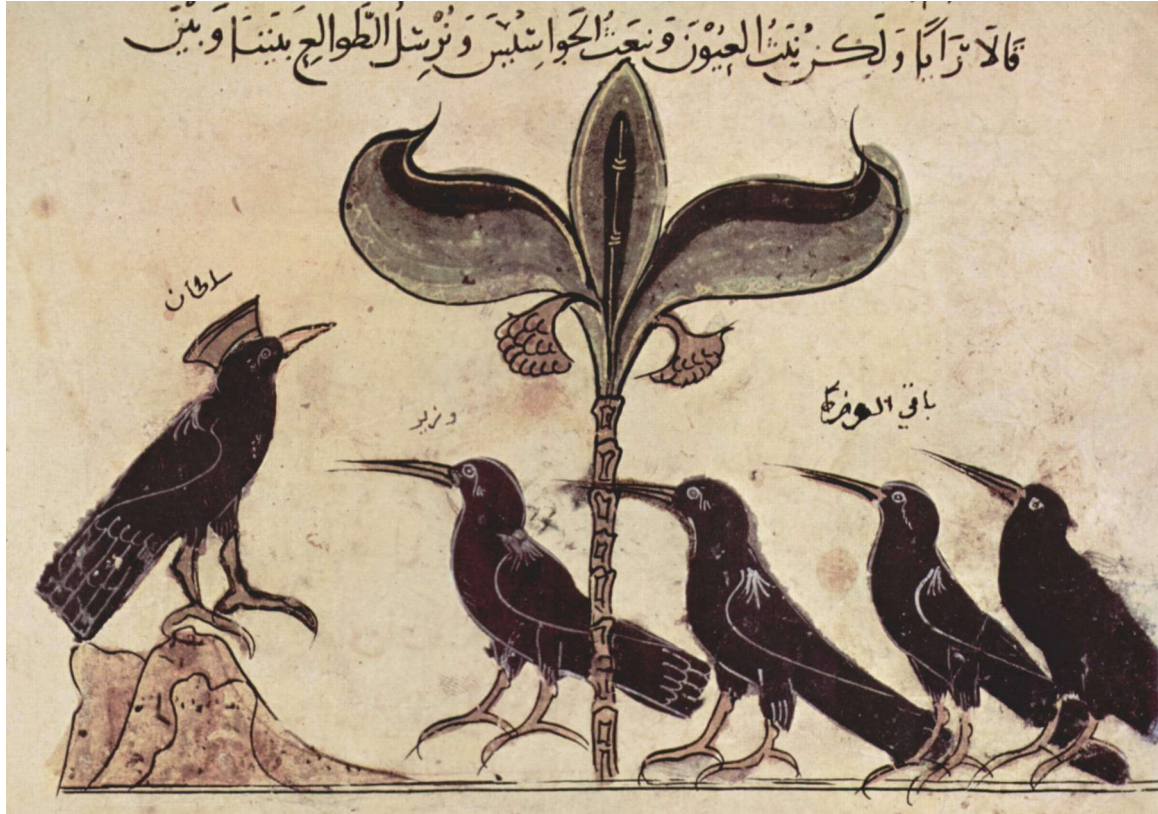 قَالَا رَايًا وَلَكِنْ نَبُثُّ العُيُوْنَ وَنَبعَثُ الجَوَاسِيْسَ وَنُرْسِلُ الطَّوَالِعَ بَيْنَنَا وَبَيْنَ
سلطان
وزير
باقي الوزرا